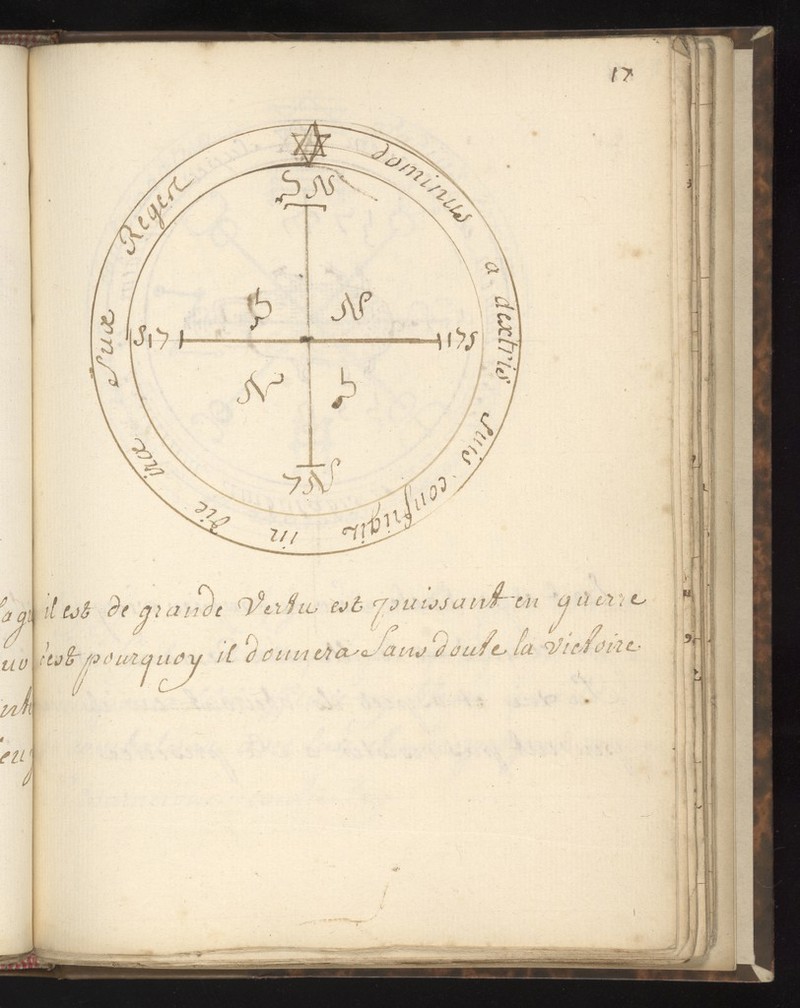 17
dominus a dextris suis confrigit in die iræ suæ Reges
il est de grande vertu est puissant en guerre
c'est pourquoy il donnera sans doute la victoire